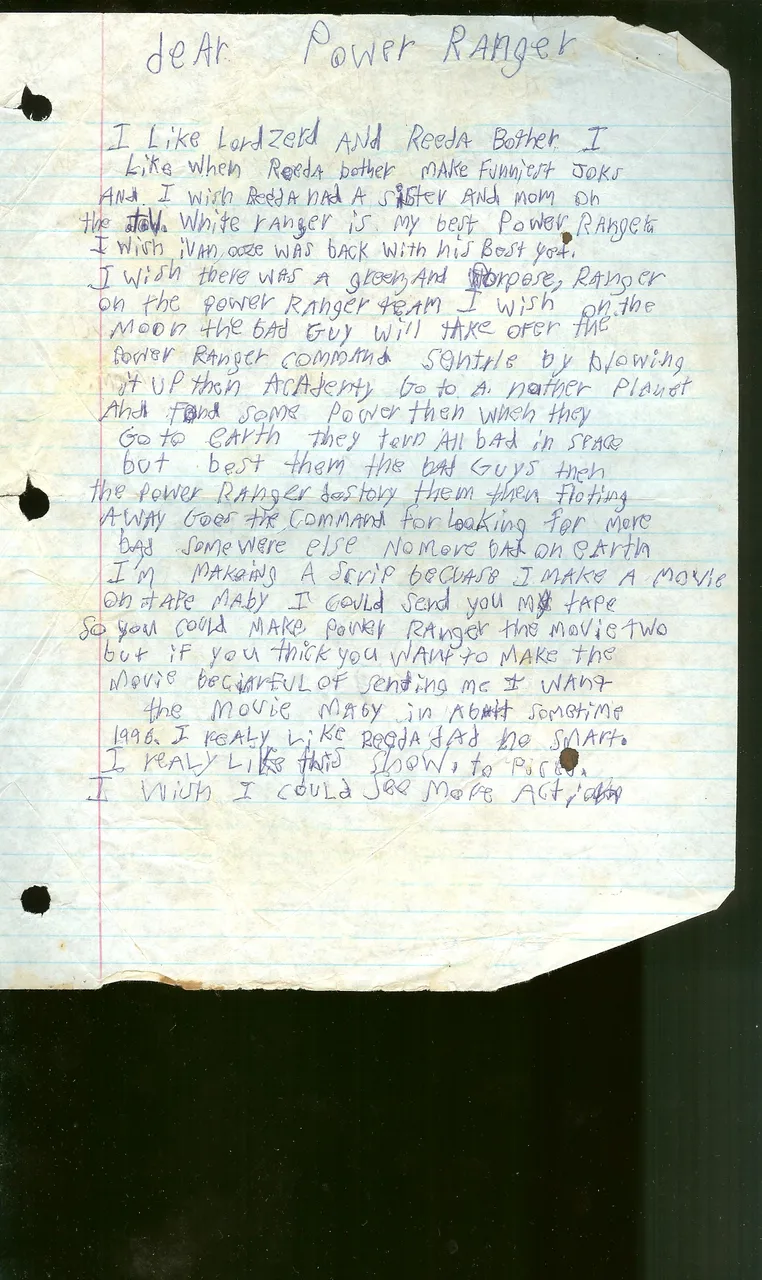 deAr Power RANger
I Like LordZerd AND ReedA Bother I
Like when ReedA bother mAKe Funniest JoKs
AND I wish ReedA had A sister AND mom on
the T.V. White ranger is my best Power RANger
I wish ivan ooze was back with his Best yet.
I wish there was A green And Porpose, RANger
on the power RANger teAm I wish on the
moon the bAd Guy will tAke ofer the
Power RANger commANd Sentrle by blowing
it up then AcAdenty Go to A nother PlANet
And fond some Power then when they
Go to eArth they tern All bAd in spAce
but best them the bAd Guys then
the power RANger destory them then floting
AWAy Goes the CommANd for looking for more
bAd some were else No more bAd on eArth
I'm mAkeing A Scrip becuase I mAKe A movie
on tApe MAby I Could Send you my tApe
So you could mAKe Power RANger the movie two
but if you thick you WANt to mAKe the
movie beciArfuL of Sending me I WANt
the movie MAby in About sometime
1996. I reALy Like ReedA dAd he smArt.
I reALy Like this show. to
I wish I could See more Action